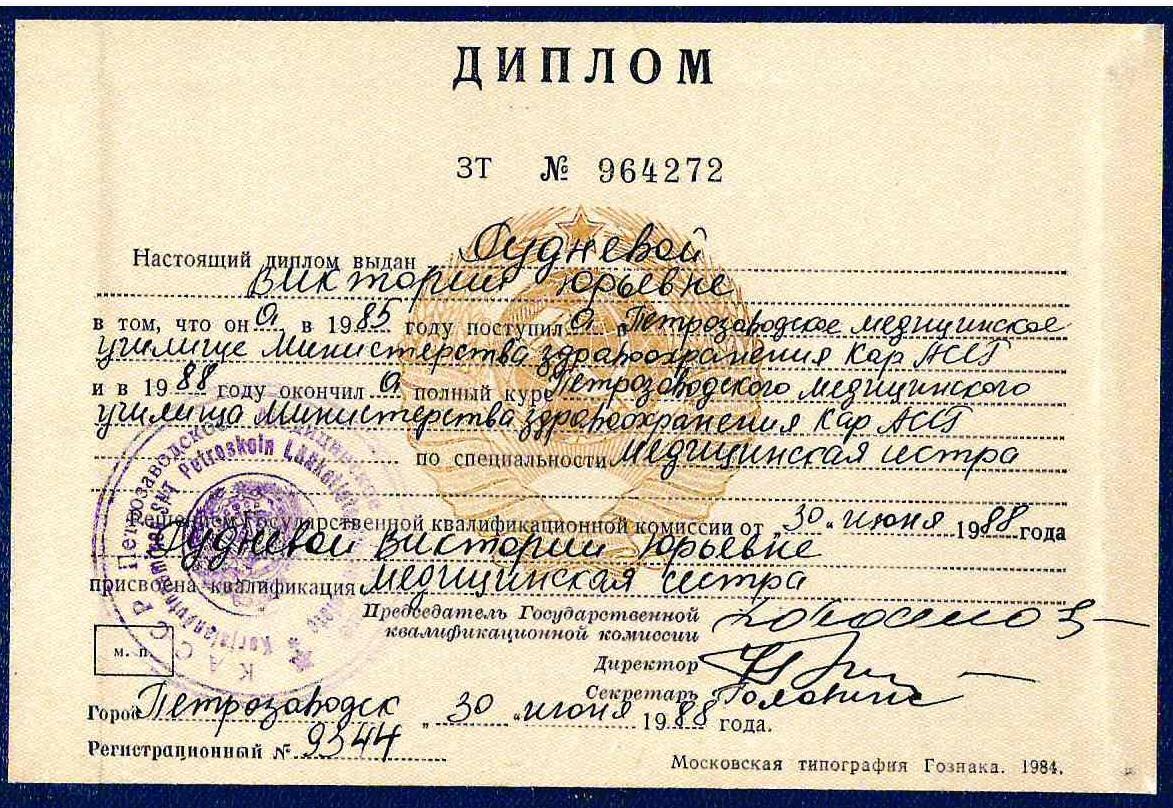 ДИПЛОМ
ЗТ № 964272
Настоящий диплом выдан Рудневой
Виктории Юрьевне
в том, что он а в 1985 году поступил а в Петрозаводское медицинское
училище Министерства здравоохранения Кар АССР
и в 1988 году окончил а полный курс Петрозаводского медицинского
училища Министерства здравоохранения Кар АССР
по специальности медицинская сестра
Решением Государственной квалификационной комиссии от „30“ июня 1988 года
Рудневой Виктории Юрьевне
присвоена квалификация медицинская сестра
Председатель Государственной
квалификационной комиссии
Директор
Секретарь
м. п.
Город Петрозаводск „30“ июня 1988 года.
Регистрационный № 9344
Московская типография Гознака. 1984.
Петрозаводское
Petroskoin
КАССР